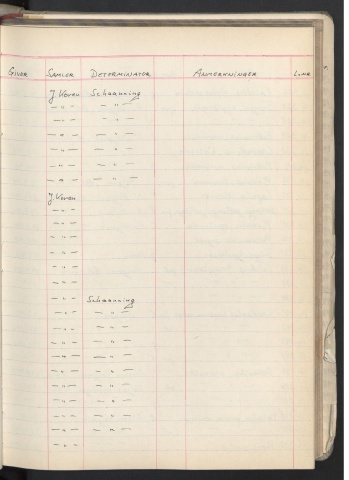 GIVER SAMLER DETERMINATOR ANMERKNINGER L.NR.
J. Koren Schaanning
—"— —"—
—"— —"—
—"— —"—
—"— —"—
—"— —"—
—"— —"—
J. Koren
—"—
—"—
—"—
—"—
—"—
—"—
—"— Schaanning
—"— —"—
—"— —"—
—"— —"—
—"— —"—
—"— —"—
—"— —"—
—"— —"—
—"— —"—
—"— —"—
—"—